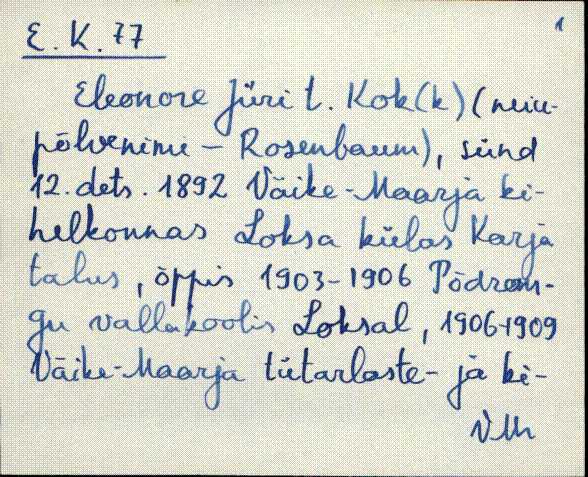 1
E. K. 77
Eleonore Jüri t. Kok(k) (neiu-
põlvenimi – Rosenbaum), sünd
12. dets. 1892 Väike-Maarja ki-
helkonnas Loksa külas Karja
talus, õppis 1903-1906 Põdran-
gu vallakoolis Loksal, 1906-1909
Väike-Maarja tütarlaste- ja ki-